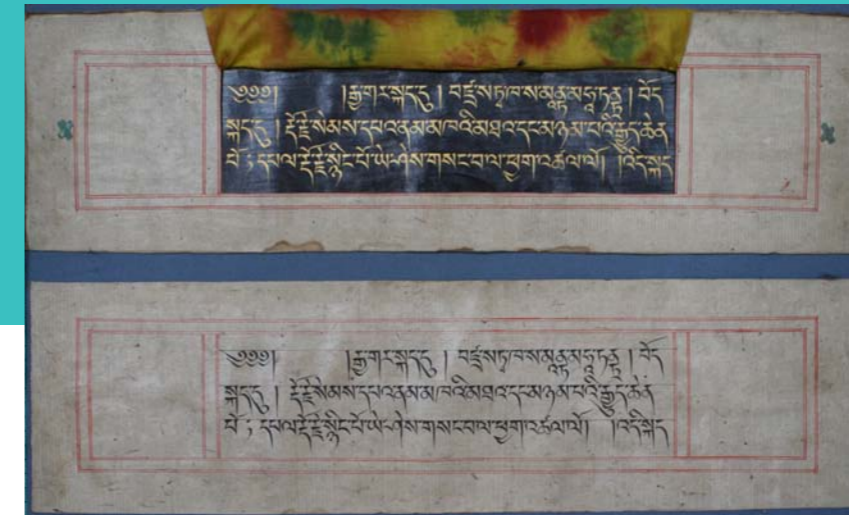 ༄༅༅། །རྒྱ་གར་སྐད་དུ། བཛྲ་སཏྭ་ཁ་ས་མནྟ་མ་ཧཱ་ཏནྟྲ། བོད་
སྐད་དུ། རྡོ་རྗེ་སེམས་དཔའ་ནམ་མཁའི་མཐའ་དང་མཉམ་པའི་རྒྱུད་ཆེན་
པོ༔ དཔལ་རྡོ་རྗེ་སྙིང་པོ་ཡེ་ཤེས་གསང་བ་ལ་ཕྱག་འཚལ་ལོ། །འདི་སྐད་
༄༅༅། །རྒྱ་གར་སྐད་དུ། བཛྲ་སཏྭ་ཁ་ས་མནྟ་མ་ཧཱ་ཏནྟྲ། བོད་
སྐད་དུ། རྡོ་རྗེ་སེམས་དཔའ་ནམ་མཁའི་མཐའ་དང་མཉམ་པའི་རྒྱུད་ཆེན་
པོ༔ དཔལ་རྡོ་རྗེ་སྙིང་པོ་ཡེ་ཤེས་གསང་བ་ལ་ཕྱག་འཚལ་ལོ། །འདི་སྐད་